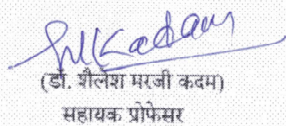 SMKadam
(डॉ. शैलेश मरजी कदम)
सहायक प्रोफेसर